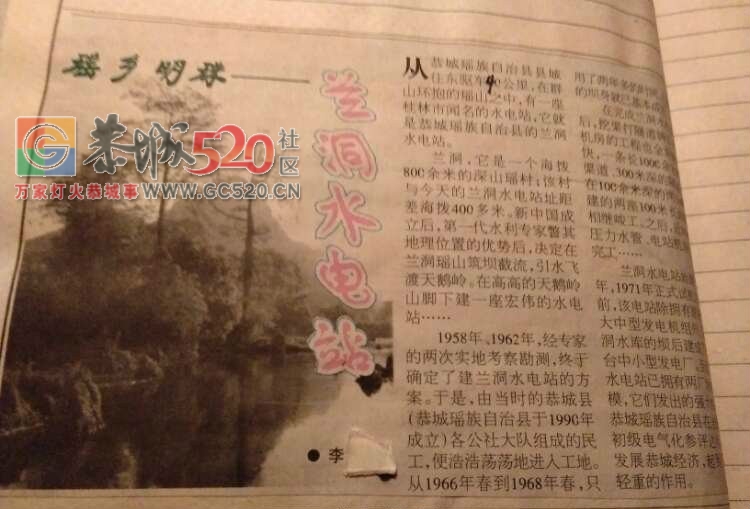 瑶乡明珠——
兰洞水电站
● 李
恭城520社区
万家灯火恭城事
WWW.GC520.CN
从恭城瑶族自治县县城
往东驱车40公里，在群
山环抱的瑶山之中，有一座
桂林市闻名的水电站，它就
是恭城瑶族自治县的兰洞
水电站。
兰洞，它是一个海拨
800余米的深山瑶村；该村
与今天的兰洞水电站址距
差海拨400多米。新中国成
立后，第一代水利专家瞥其
地理位置的优势后，决定在
兰洞瑶山筑坝截流，引水飞
渡天鹅岭。在高高的天鹅岭
山脚下建一座宏伟的水电
站……
1958年、1962年，经专家
的两次实地考察勘测，终于
确定了建兰洞水电站的方
案。于是，由当时的恭城县
(恭城瑶族自治县于1990年
成立)各公社大队组成的民
工，便浩浩荡荡地进入工地。
从1966年春到1968年春，只
用了两年多的时间，
的坝身就已基本
在完成兰洞
后，挖渠打隧道
机房的工程也全
快，一条长1000余
渠道、300米深的
在100余米深的
建的两座100米长
相继竣工。之后，
压力水管、电站机
完工……
兰洞水电站
年，1971年正式试
前，该电站除拥有
大中型发电机组
洞水库的坝后建成
台中小型发电厂。
水电站已拥有两厂
模，它们发出的强
恭城瑶族自治县在
初级电气化参评达
发展恭城经济，起
轻重的作用。